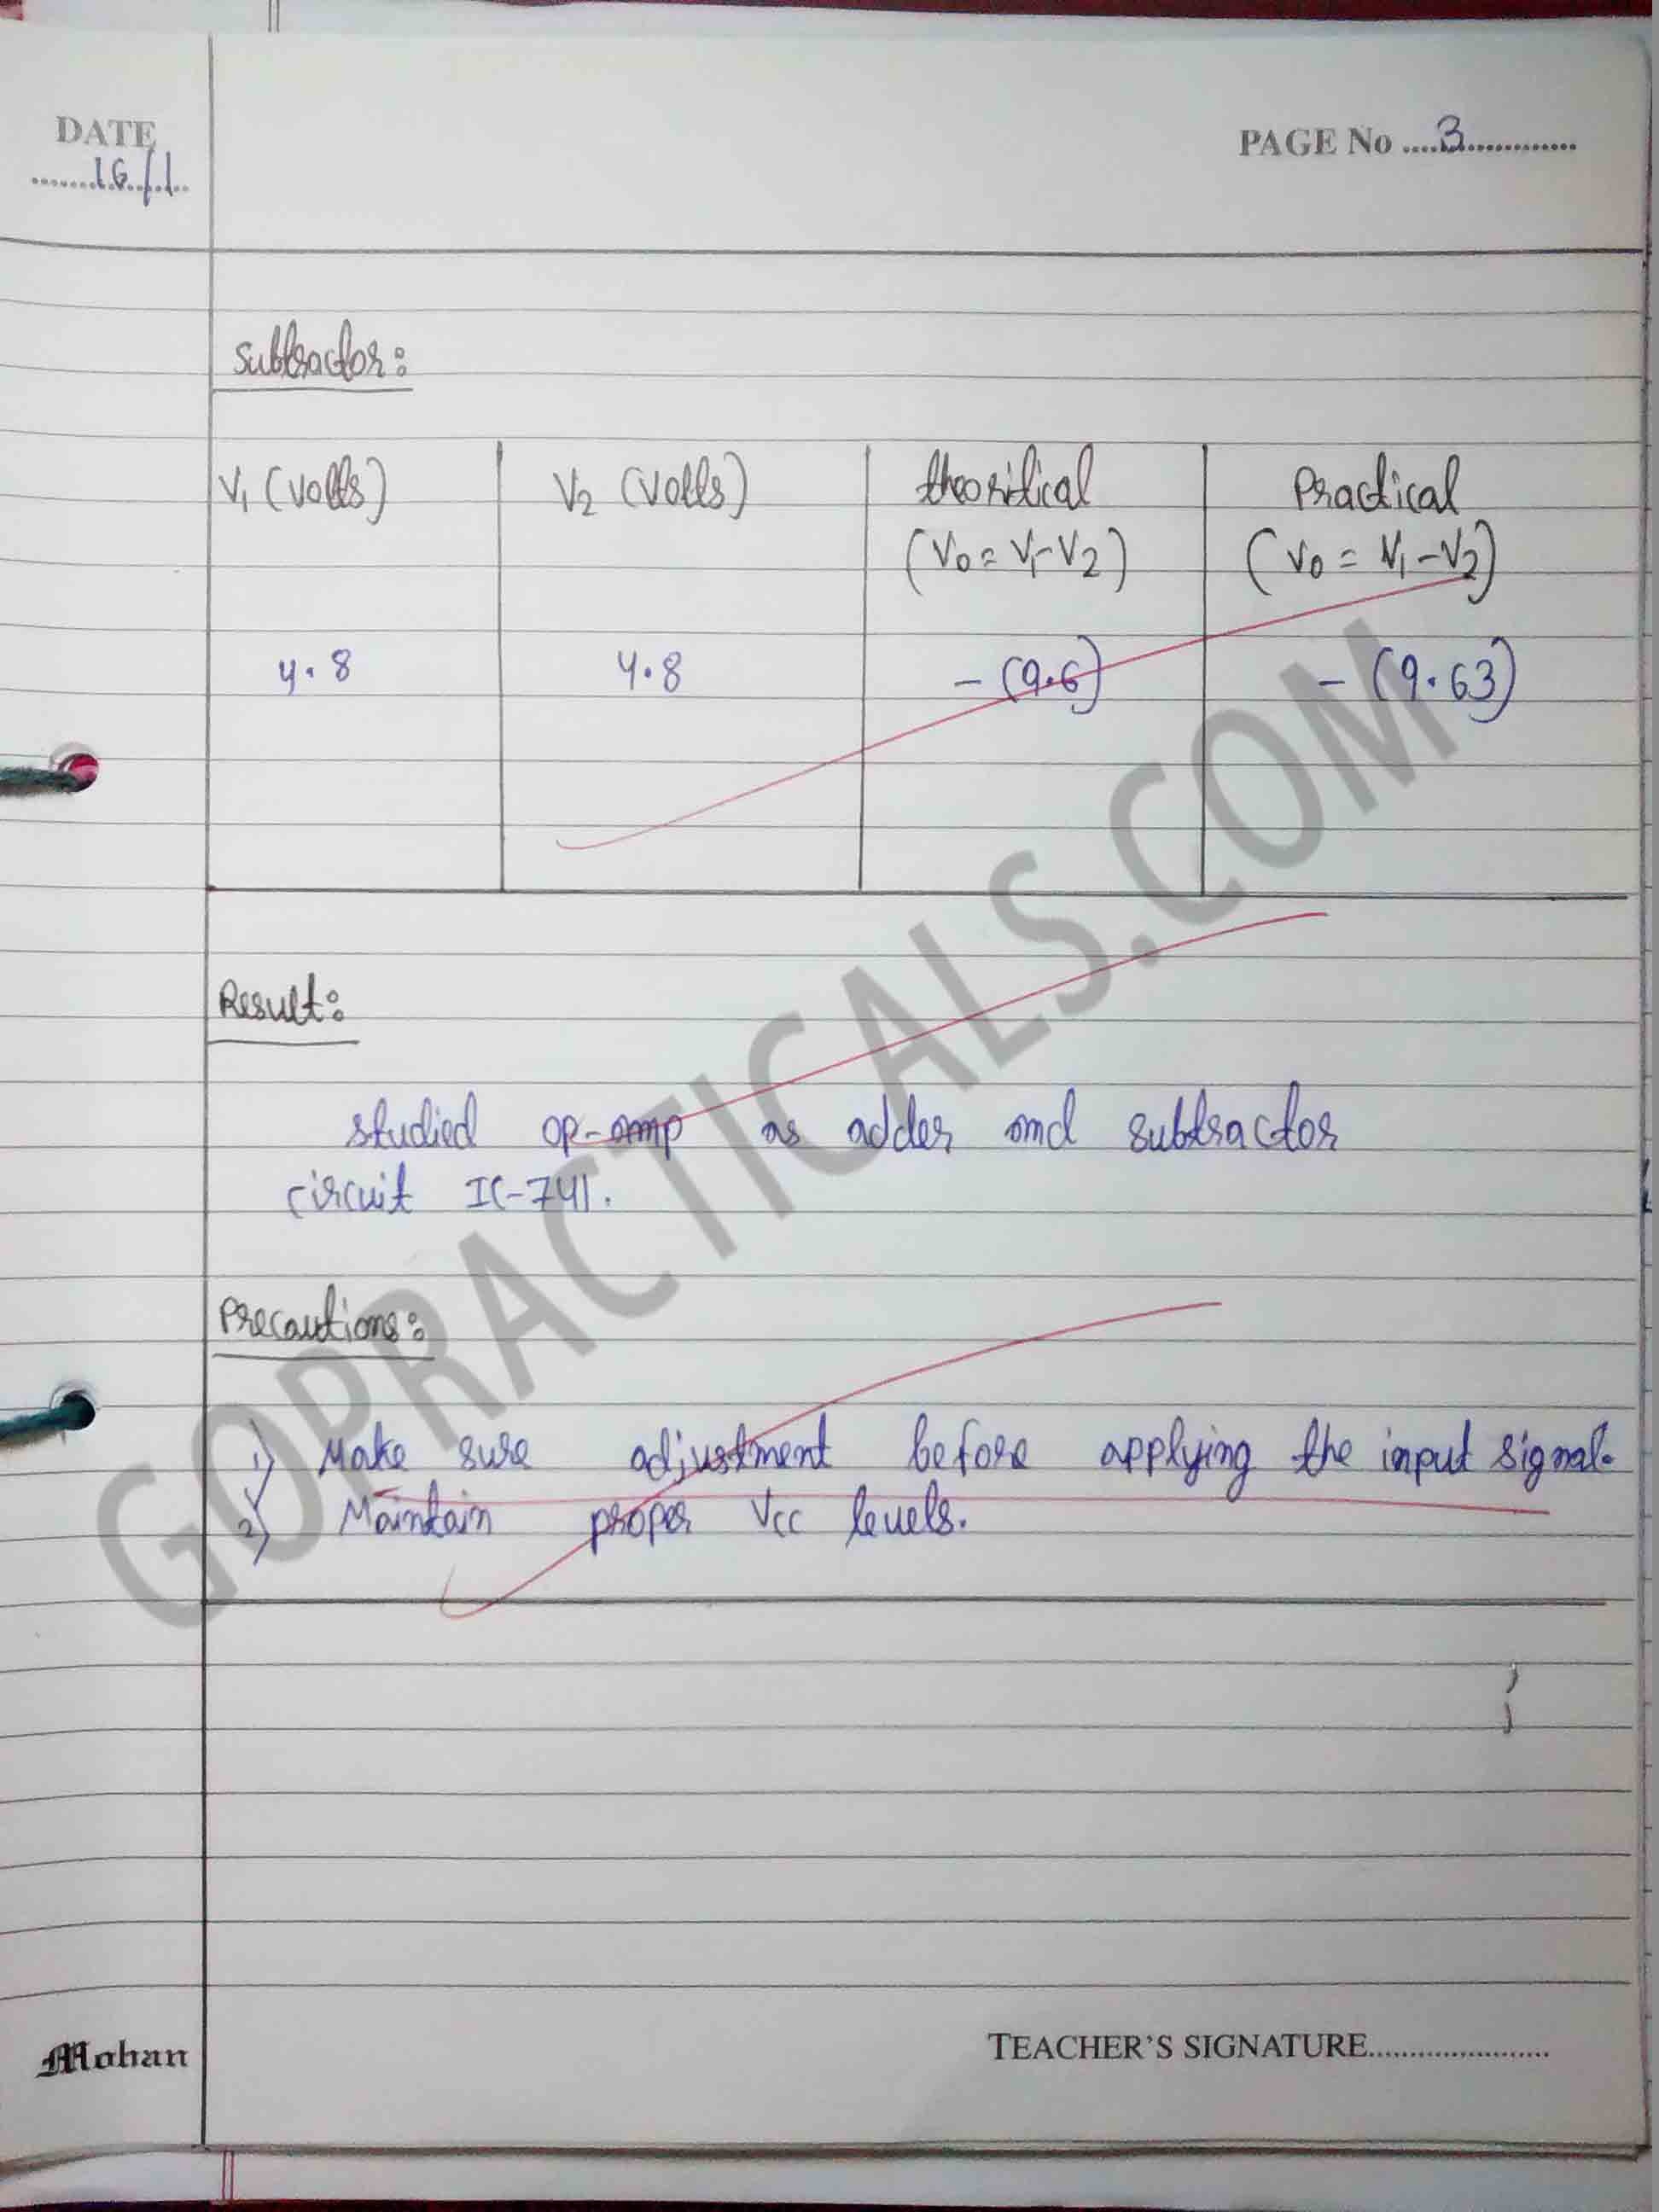 DATE
16/1
PAGE No ....3.............
Subtractor:
V1 (volts) V2 (volts) theoritical Practical
(V0 = V1-V2) (V0 = V1-V2)
4.8 4.8 -(9.6) -(9.63)
Result:
studied op-amp as adder and subtractor
circuit IC-741.
Precautions:
1) Make sure adjustment before applying the input signal.
2) Maintain proper Vcc levels.
GOPRACTICALS.COM
Mohan
TEACHER'S SIGNATURE.......................